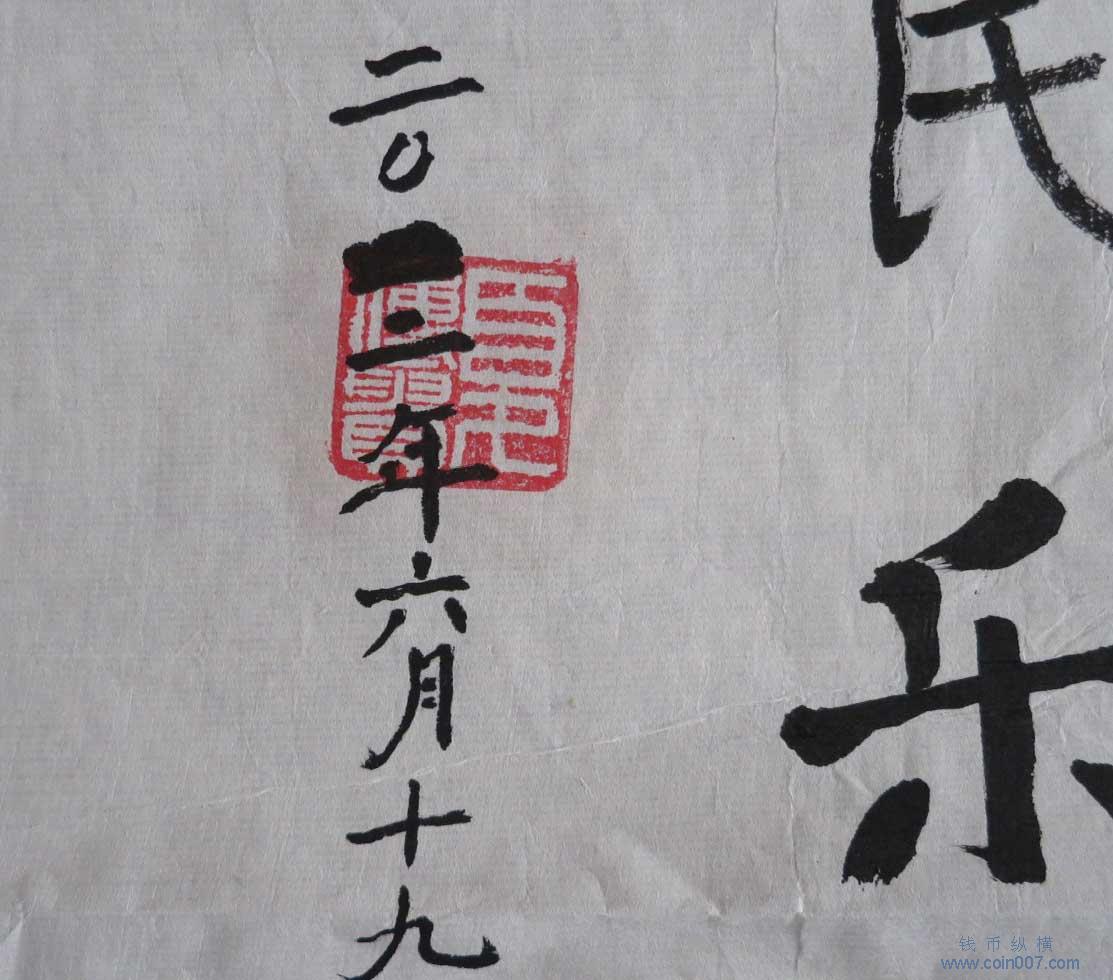 民乐
二〇二年六月十九
钱币纵横
www.coin007.com